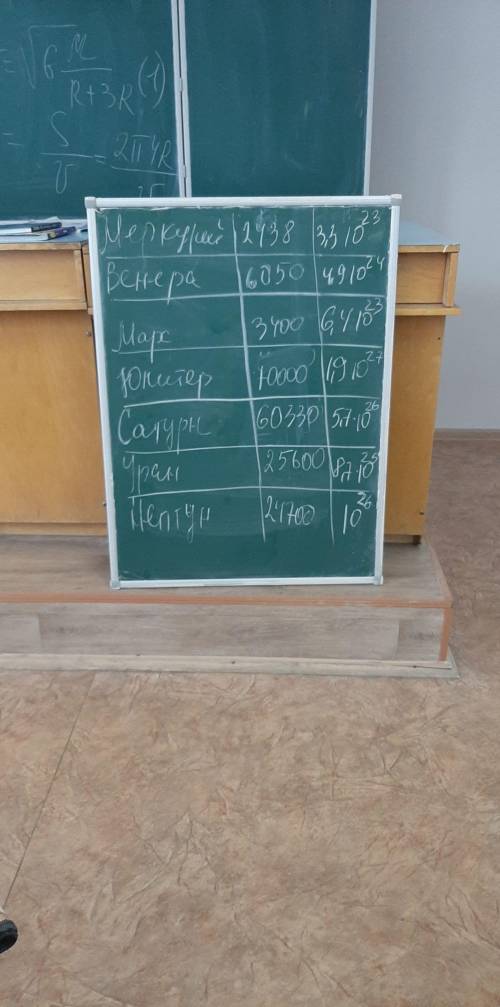 = √G M / R+3R (1)
= S / υ = 2π4R
Меркурий 2438 3,3 10²³
Венера 6050 4,9 10²⁴
Марс 3400 6,4 10²³
Юпитер 70000 1,9 10²⁷
Сатурн 60330 5,7·10²⁶
Уран 25600 8,7·10²⁵
Нептун 24700 10²⁶